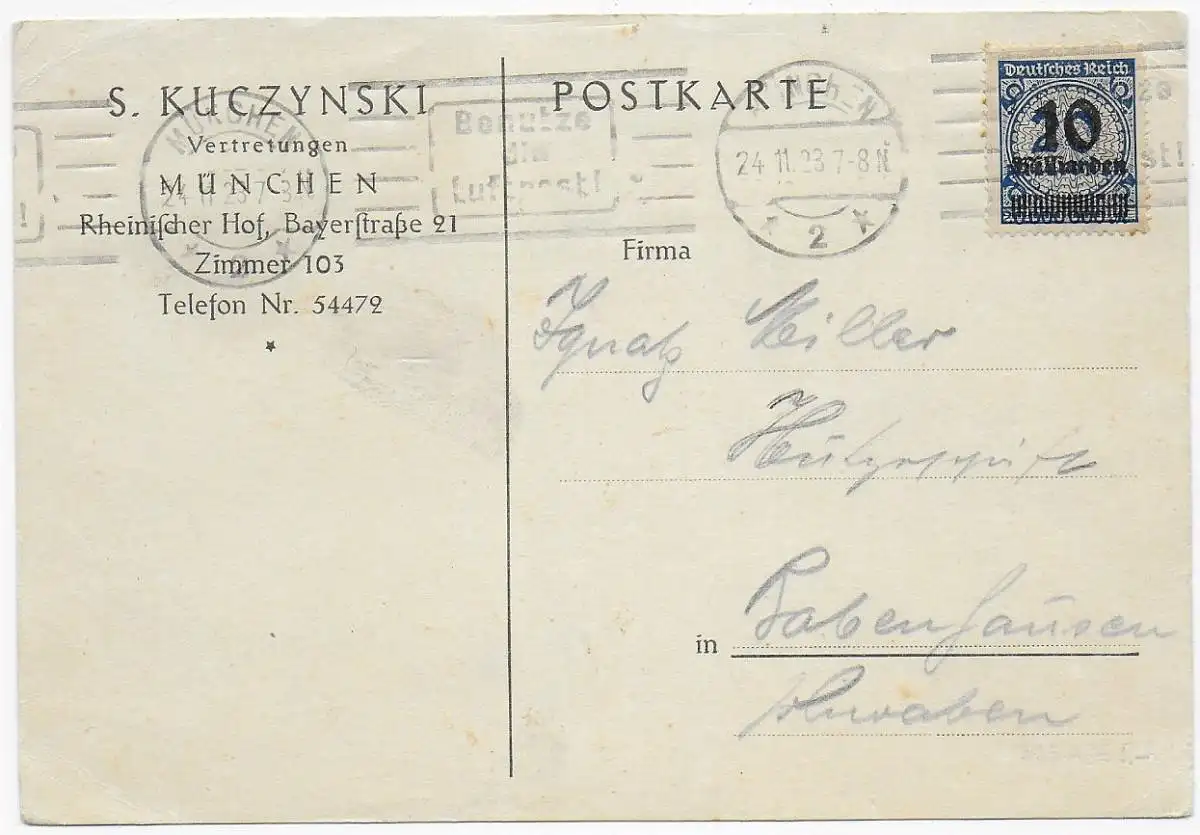 S. KUCZYNSKI
Vertretungen
MÜNCHEN
Rheinischer Hof, Bayerstraße 21
Zimmer 103
Telefon Nr. 54472
MÜNCHEN
24 11 23 7-8 N
* 2 *
Benutze
die
Luftpost!
POSTKARTE
MÜNCHEN
24 11 23 7-8 N
* 2 *
Deutsches Reich
10
Milliarden
Firma
Ignatz Miller
in Babenhausen
Schwaben